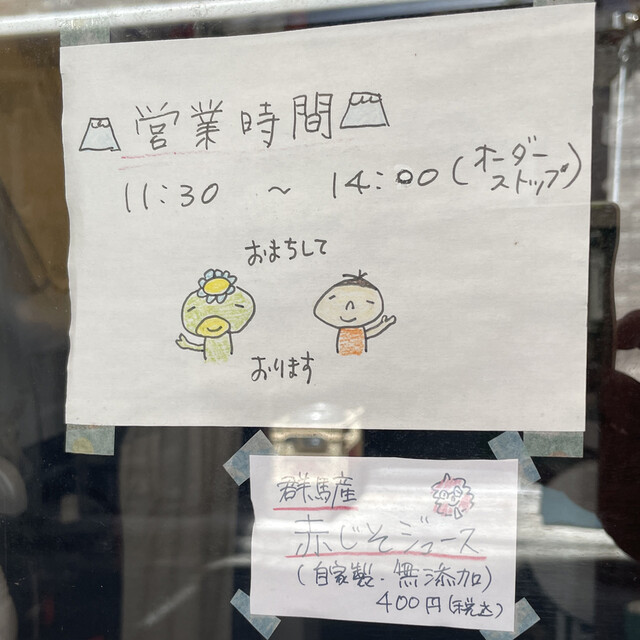 営業時間
11:30 ~ 14:00 (オーダー
ストップ)
おまちして
おります
群馬産
赤じそジュース
(自家製・無添加)
400円(税込)